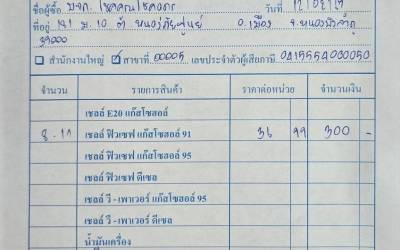 ชื่อผู้ซื้อ บจก. วันที่
ที่อยู่ 191 ม.10 ต. อ.เมือง จ.หนองบัวลำภู
39000
สำนักงานใหญ่ ☑ สาขาที่ 00005 เลขประจำตัวผู้เสียภาษี
จำนวน รายการสินค้า ราคาต่อหน่วย จำนวนเงิน
เชลล์ E20 แก๊สโซฮอล์
เชลล์ ฟิวเซฟ แก๊สโซฮอล์ 91 36 99 300 -
เชลล์ ฟิวเซฟ แก๊สโซฮอล์ 95
เชลล์ ฟิวเซฟ ดีเซล
เชลล์ วี - เพาเวอร์ แก๊สโซฮอล์ 95
เชลล์ วี - เพาเวอร์ ดีเซล
น้ำมันเครื่อง